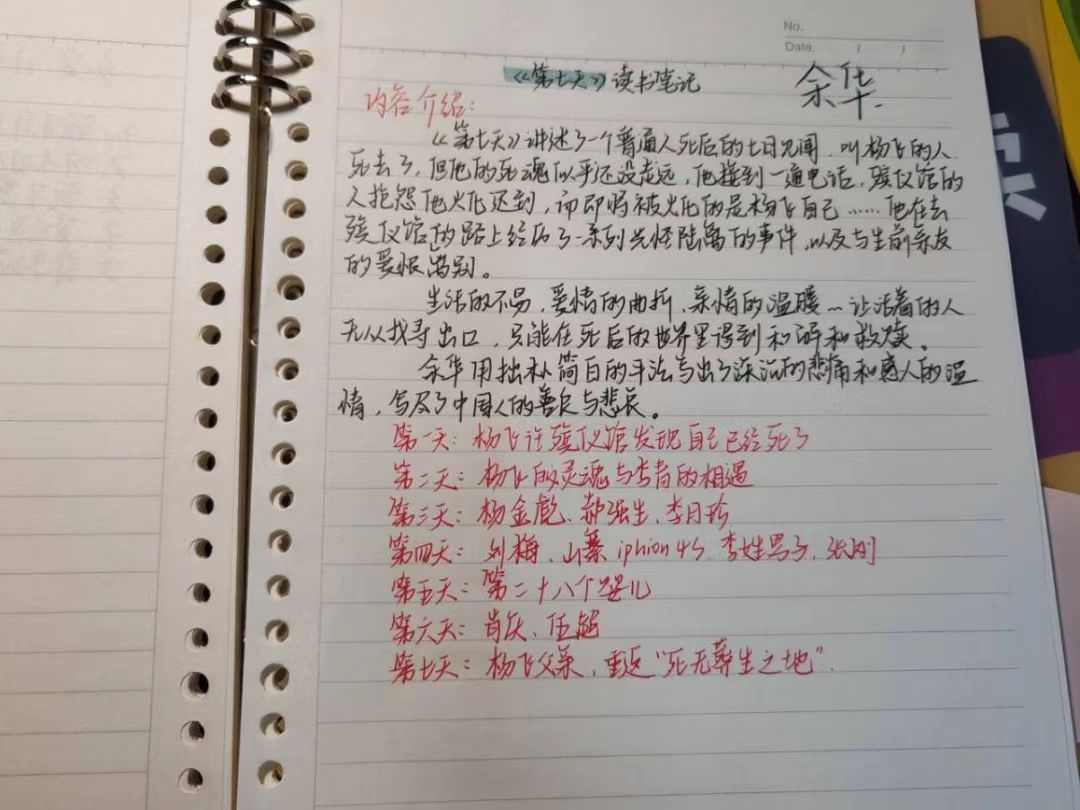 No.
Date. / /
《第七天》读书笔记
余华.
内容介绍：
《第七天》讲述了一个普通人死后的七日见闻.叫杨飞的人
死去了，但他的死魂似乎还没走远，他接到一通电话，殡仪馆的
人抱怨他火化迟到，而即将被火化的是杨飞自己……他在去
殡仪馆的路上经历了一系列光怪陆离的事件，以及与生前亲友
的爱恨离别。
生活的不易，爱情的曲折、亲情的温暖…让活着的人
无从找寻出口，只能在死后的世界里得到和解和救赎。
余华用拙朴简白的手法写出了深沉的悲痛和感人的温
情，写尽了中国人的善良与悲哀。
第一天：杨飞往殡仪馆发现自己已经死了
第二天：杨飞的灵魂与李青的相遇
第三天：杨金彪、郝强生、李月珍
第四天：刘梅、山寨iphion 4s、李姓男子、张刚
第五天：第二十八个婴儿
第六天：肖庆、伍超
第七天：杨飞父亲，重返“死无葬生之地”.